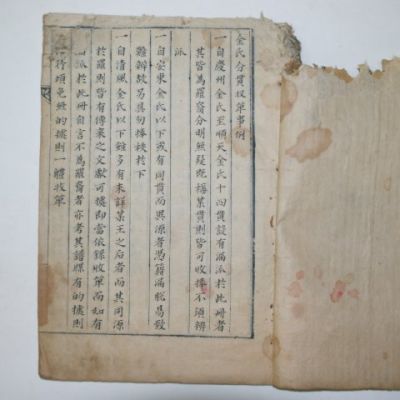 金氏分貫收單事例
一自慶州金氏至順天金氏十四貫設有漏派於此冊者
其皆為羅裔分明無疑既稱某貫則皆可收捧不須辨
派
一自安東金氏以下或有同貫而異源者憑籍滿貌易致
難辨故另具句捧秩于下
一自清風金氏以下雖多有未詳某王之后者而其同源
於羅則皆有傳來之文獻可據即當依錄收單而如有
漏派於此冊自言不為羅裔者亦考其譜牒有的據則
可據則一體收單